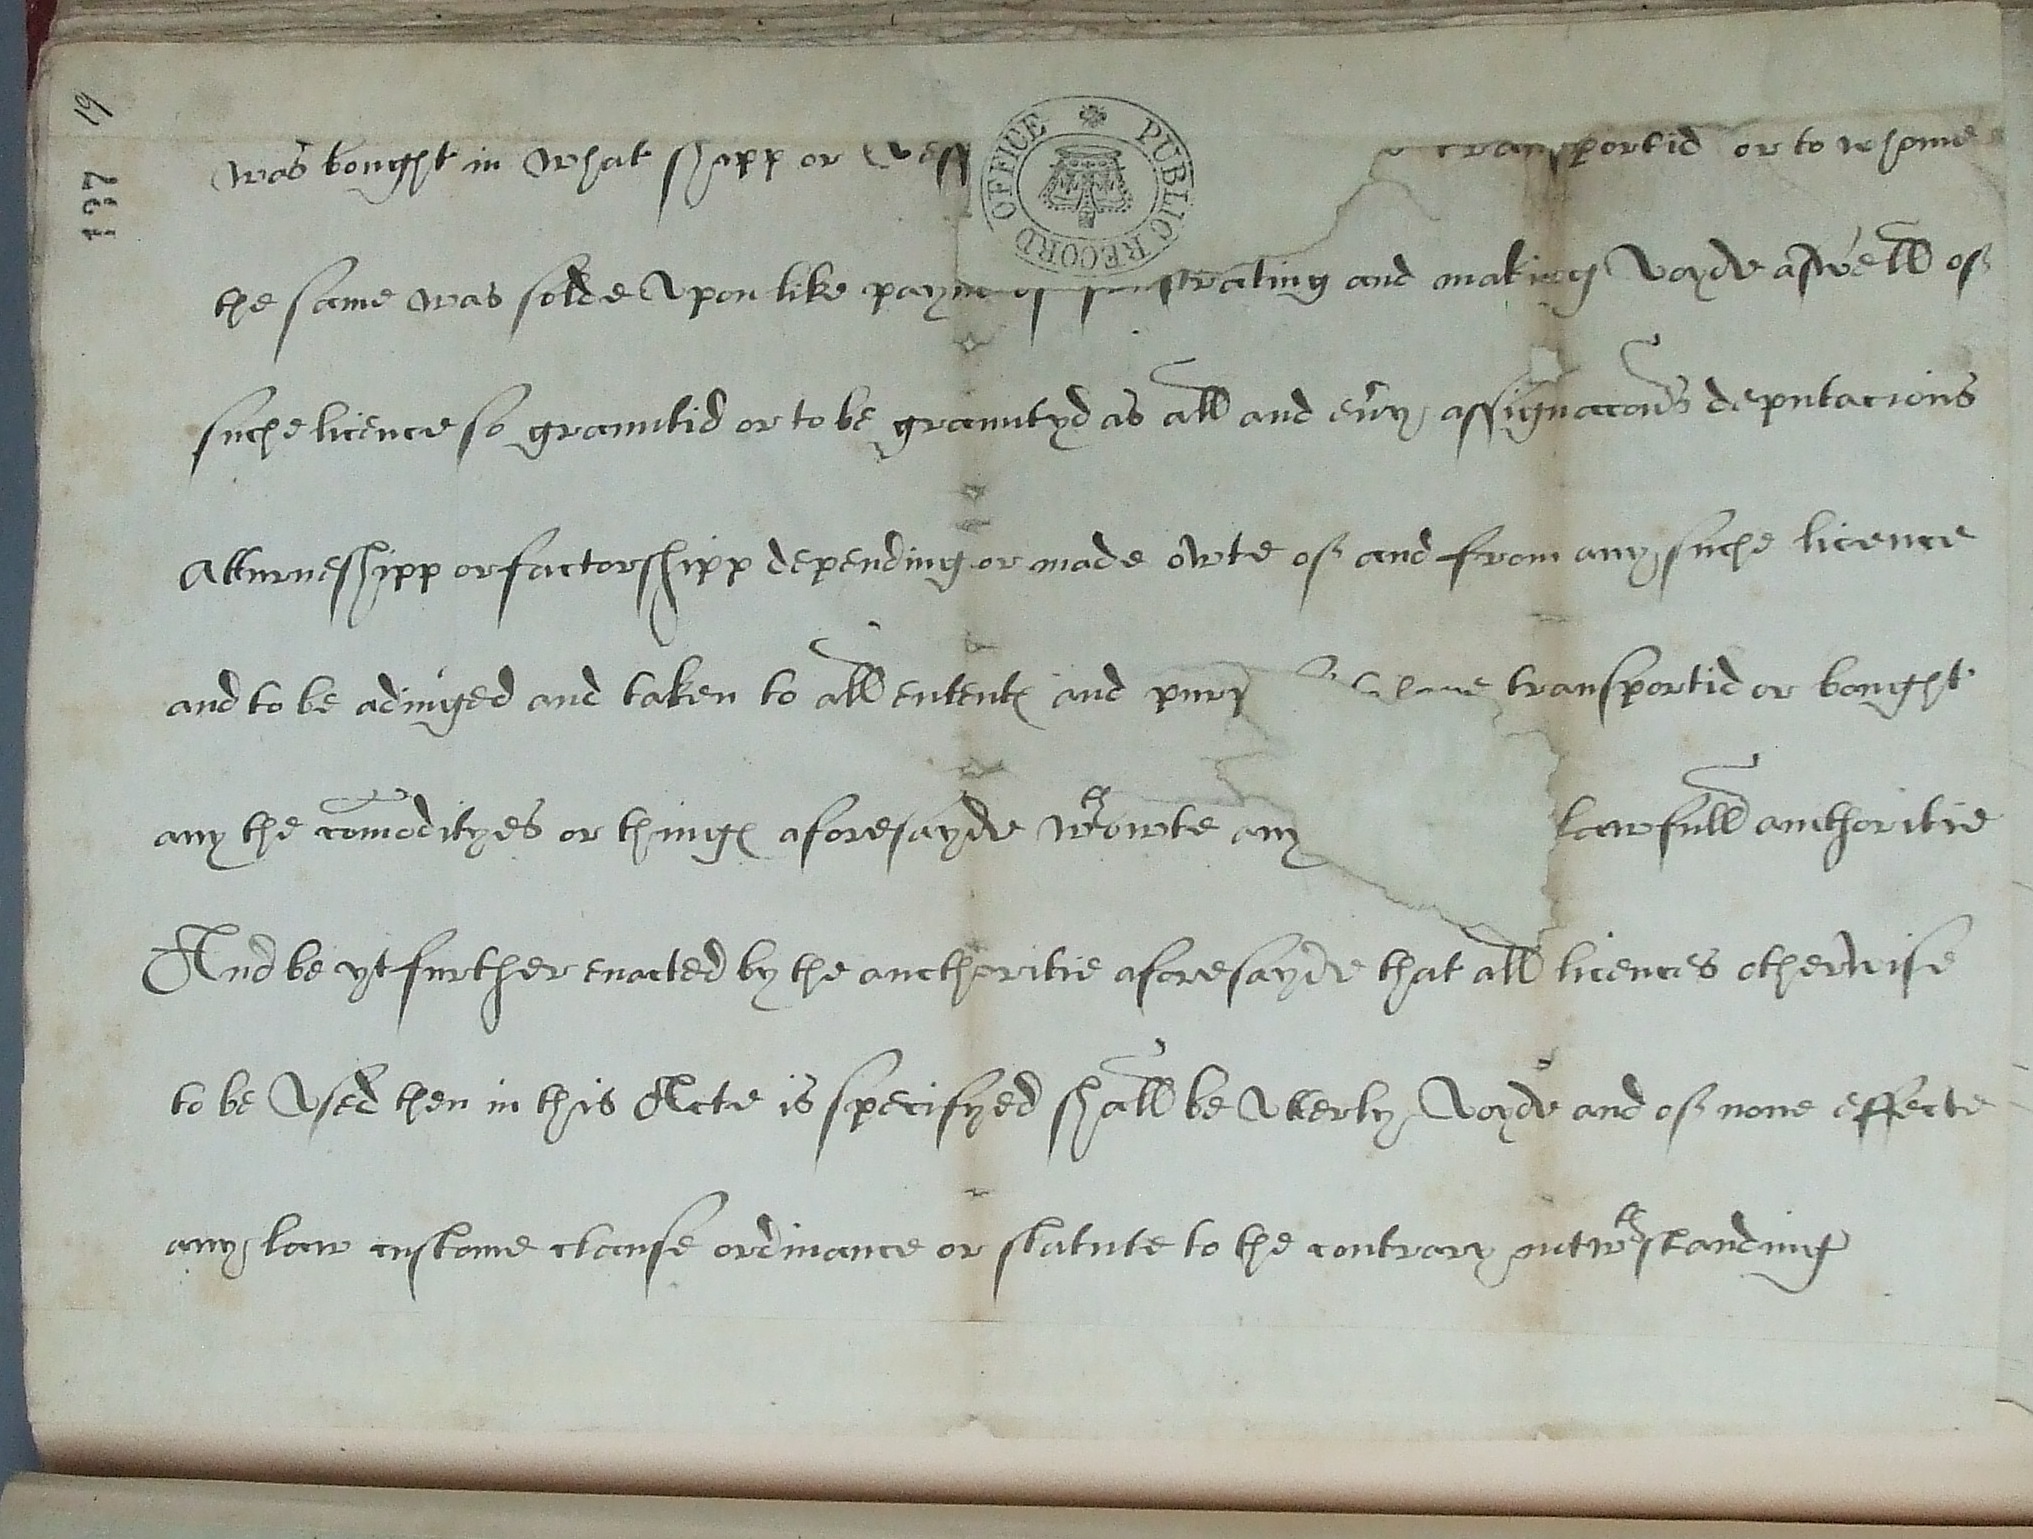 19
137
PUBLIC RECORD OFFICE
was bought in what shipp or vess transportid or to whome
the same was solde upon like payne of frustrating and making voyde aswell of
suche licence so grauntid or to be grauntyd as all and eūy assignacōns deputacions
Atturneshipp or factorshipp depending or made owte of and from any suche licence
and to be adiuged and taken to all ententꝭ and purp transportid or bought
any the cōmodityes or thingꝭ aforesayde wᵗʰowte any lawfull aucthoritie
And be yt further enacted by the aucthoritie aforesayde that all licences otherwise
to be used then in this Acte is specifyed shall be utterly voyde and of none effecte
any law custome clause ordinance or statute to the contrary notwᵗʰstanding